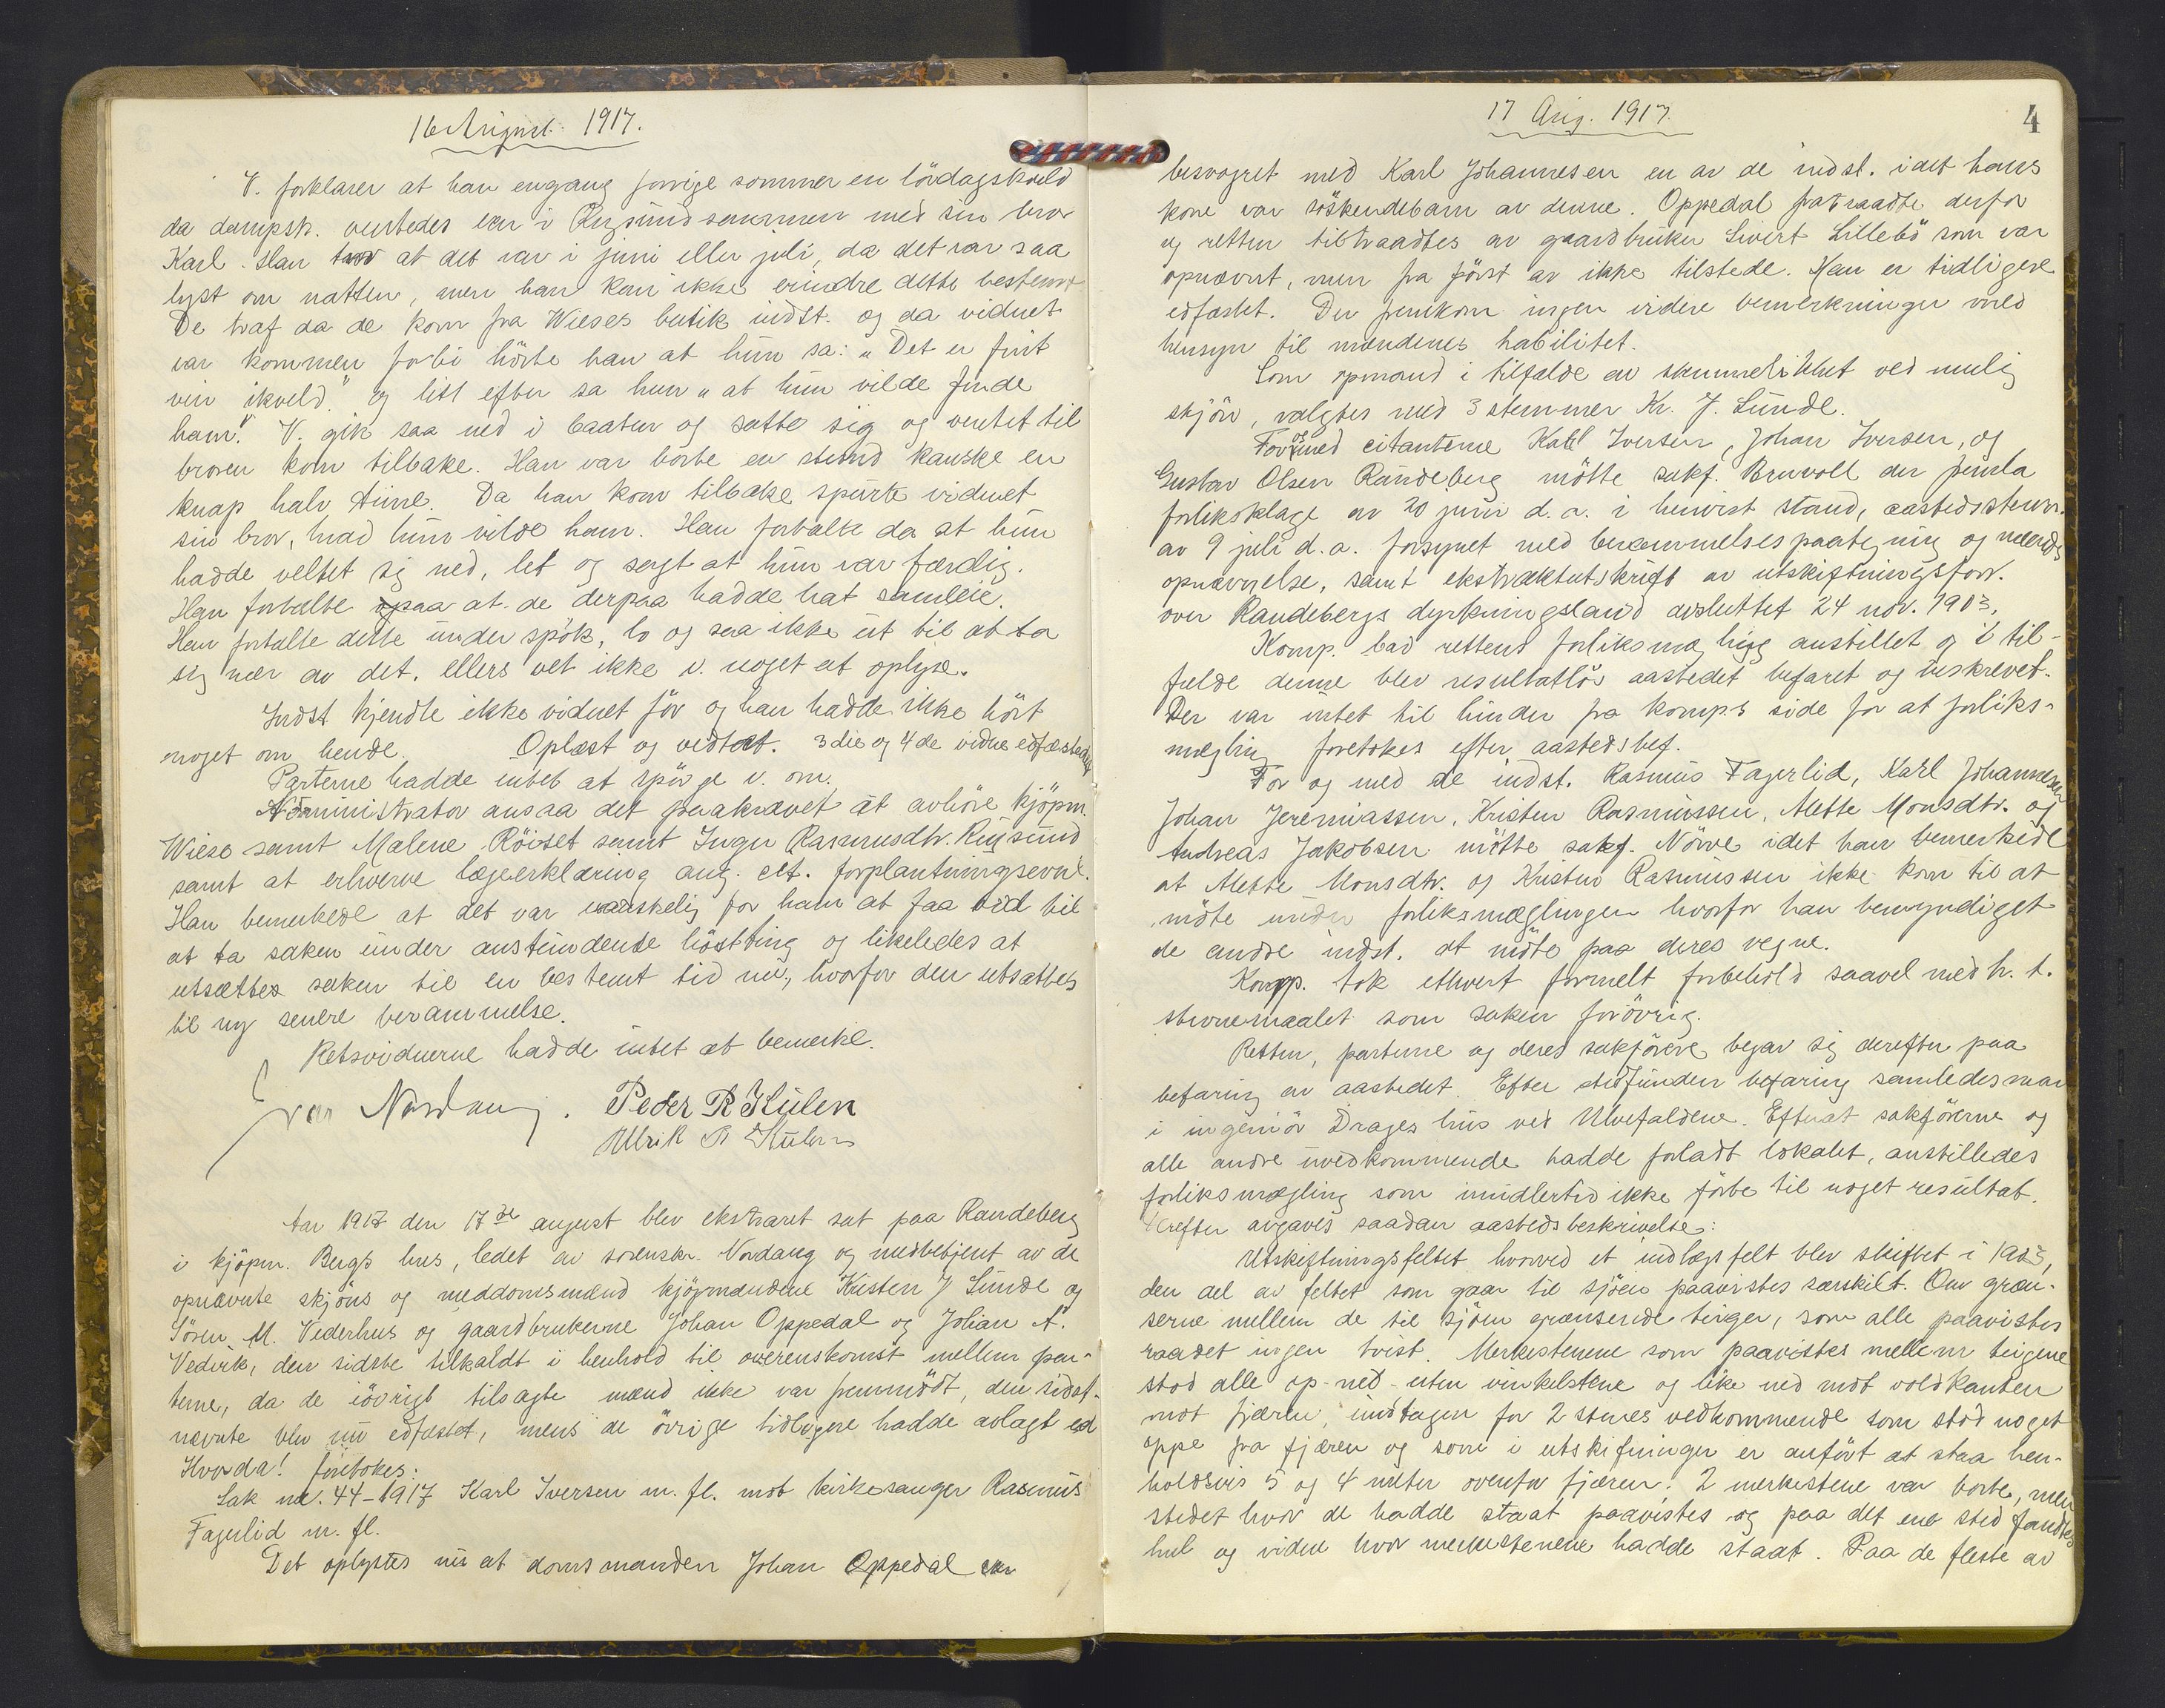 16 August 1917.
V. forklarer at han engang forrige sommer en lördagskveld
da dampsk. ventedes var i Rugsundsammen med sin bror
Karl. Han tror at det var i juni eller juli, da det var saa
lyst om natten, men han kan ikke erindre dette bestemt
De traf da de kom fra Wieses butik indst. og da vidnet
var kommen forbi hörte han at hun sa: "Det er fint
veir ikveld." og litt efter sa hun "at hun vilde finde
ham." V. gik saa ned i baaten og satte sig og ventet til
broren kom tilbake. Han var borte en stund kanske en
knap halv time. Da han kom tilbake spurte vidnet
sin bror, hvad hun vilde ham. Han fortalte da at hun
hadde veltet sig ned, let og sagt at hun var færdig.
Han fortalte ogsaa at de derpaa hadde hat samleie.
Han fortalte dette under spök, lo og saa ikke ut til at ta
sig nær av det. ellers vet ikke v. noget at oplyse.
Indst. kjendte ikke vidnet för og han hadde ikke hört
noget om hende. Oplæst og vedtat. 3die og 4de vidne edfæstedes
Parterne hadde intet at spörge v. om.
Administrator ansaa det paakrævet at avhöre kjöpm.
Wiese samt Malene Röiset samt Inga Rasmusdtr. Rugsund
samt at erhverve lægeerklæring ang. clt. forplantningsevne.
Han bemerkede at det var vanskelig for ham at faa tid til
at ta saken under anstundende höstting og likeledes at
utsættes saken til en bestemt tid nu, hvorfor den utsattes
til ny senere berammelse.
Retsvidnerne hadde intet at bemerke.
Nordaug. Peder R Hülen
Ulrik R Hülen
Aar 1917 den 17de august blev ekstraret sat paa Randeberg
i kjöpm. Bergs hus, ledet av sorenskr. Nordaug og medbetjent av de
opnævnte skjöns og meddomsmænd kjöpmændene Kristen J Sunde og
Sören M. Vederhus og gaardbrukerne Johan Oppedal og Johan A.
Vedvik, den sidste tilkaldt i henhold til overenskomst mellem par-
terne, da de iövrigt tilsagte mænd ikke var fremmödt, den sidst-
nævnte blev nu edfæstet, mens de övrige tidligere hadde avlagt ed
Hvorda! foretokes:
Sak nr. 44-1917 Karl Iversen m. fl. mot kirkesanger Rasmus
Fagerlid m. fl.
Det oplystes nu at domsmanden Johan Oppedal var
17 Aug. 1917.
4
besvogret med Karl Johannesen en av de indst. idet hans
kone var söskendebarn av denne. Oppedal fratraadte derfor
og retten tiltraadtes av gaardbruker Sivert Lillebö som var
opnævnt, men fra först av ikke tilstede. Han er tidligere
edfæstet. Der fremkom ingen videre bemerkninger med
hensyn til mændenes habilitet.
Som opmand i tilfælde av stemmelikhet ved mulig
skjön, valgtes med 3 stemmer Kr. J. Sunde.
For og med citanterne Karl Iversen, Johan Iversen, og
Gustav Olsen Randeberg mötte sakf. Bruvoll der fremla
forliksklage av 20 juni d. a. i henvist stand, aastedsstevn.
av 9 juli d. a. forsynet med berammelsespaategning og mænds
opnævnelse, samt ekstraktutskrift av utskiftningsforr.
over Randebergs dyrkningsland avsluttet 24 nov. 1903.
Komp. bad rettens forliksmægling anstillet og i til-
fælde denne blev resultatlös aastedet befaret og beskrevet.
Der var intet til hinder fra komps side for at forliks-
mægling foretokes efter aastedsbef.
For og med de indst. Rasmus Fagerlid, Karl Johannesen
Johan Jeremiassen, Kristen Rasmussen, Mette Monsdtr. og
Andreas Jakobsen mötte sakf. Nörve idet han bemerkede
at Mette Monsdtr. og Kristen Rasmussen ikke kom til at
möte under forliksmæglingen hvorfor han bemyndiget
de andre indst. at möte paa deres vegne.
Komp. tok ethvert formelt forbehold saavel med h. t.
stevnemaalet som saken forövrig.
Retten, parterne og deres sakförere begav sig derefter paa
befaring av aastedet. Efter stedfunden befaring samledes man
i ingeniör Drages hus ved Ulvefaldene. Efterat sakförerne og
alle andre uvedkommende hadde forladt lokalet, anstilledes
forliksmægling som imidlertid ikke förte til noget resultat.
Herefter avgaves saadan aastedsbeskrivelse:
Utskiftningsfeltet hvorved et indlagt felt blev skiftet i 1903,
den del av feltet som gaar til sjöen paavistes særskilt. Om græn-
serne mellem de til sjöen grænsende teiger, som alle paavistes
raadet ingen tvist. Merkestenene som paavistes mellem teigene
stod alle op-ned-uten vinkelstene og like ned mot voldkanten
mot fjæren, undtagen for 2 stenes vedkommende som stod noget
oppe fra fjæren og som i utskiftningen er anfört at staa hen-
holdsvis 5 og 4 meter ovenfor fjæren. 2 merkestene var borte, men
stedet hvor de hadde staat paavistes og paa det ene sted fandtes
hul og vidne hvor merkestenene hadde staat. Paa de fleste av